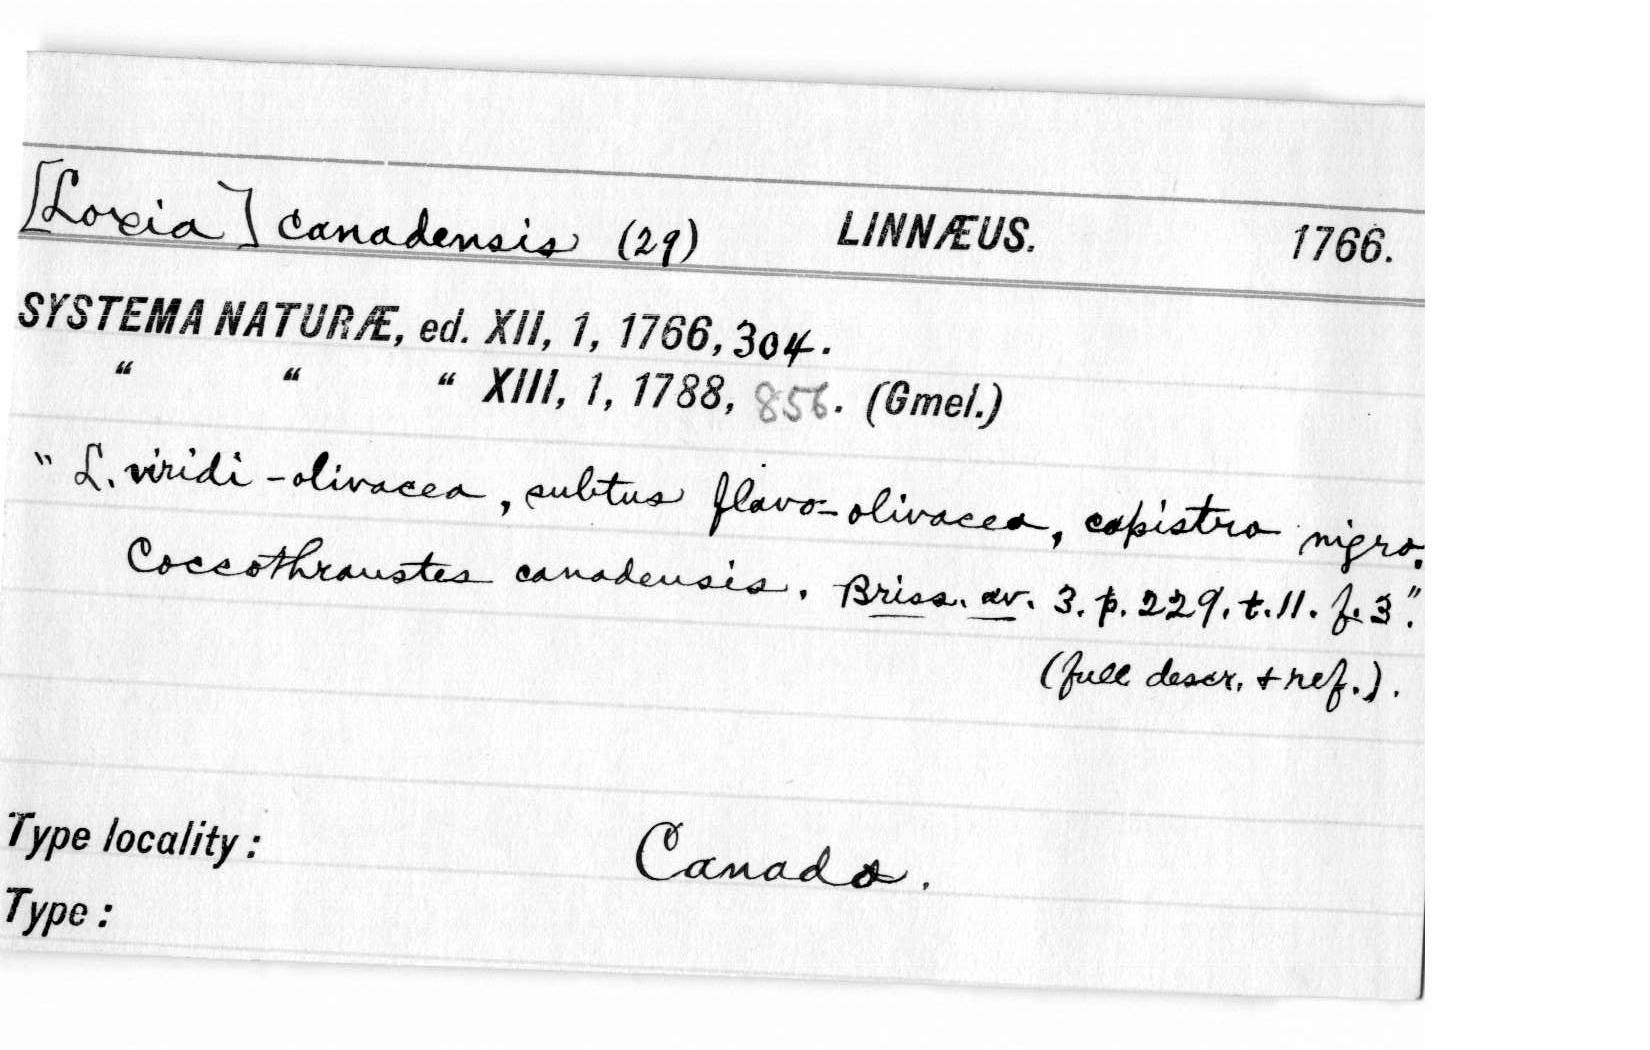 [Loxia] canadensis (29) LINNÆUS. 1766.
SYSTEMA NATURÆ, ed. XII, 1, 1766, 304.
" " " XIII, 1, 1788, 856. (Gmel.)
"L. viridi-olivacea, subtus flavo-olivacea, capistro nigro.
Coccothraustes canadensis. Briss. av. 3. p. 229. t. 11. f. 3".
(full descr. + ref.).
Type locality: Canada.
Type: